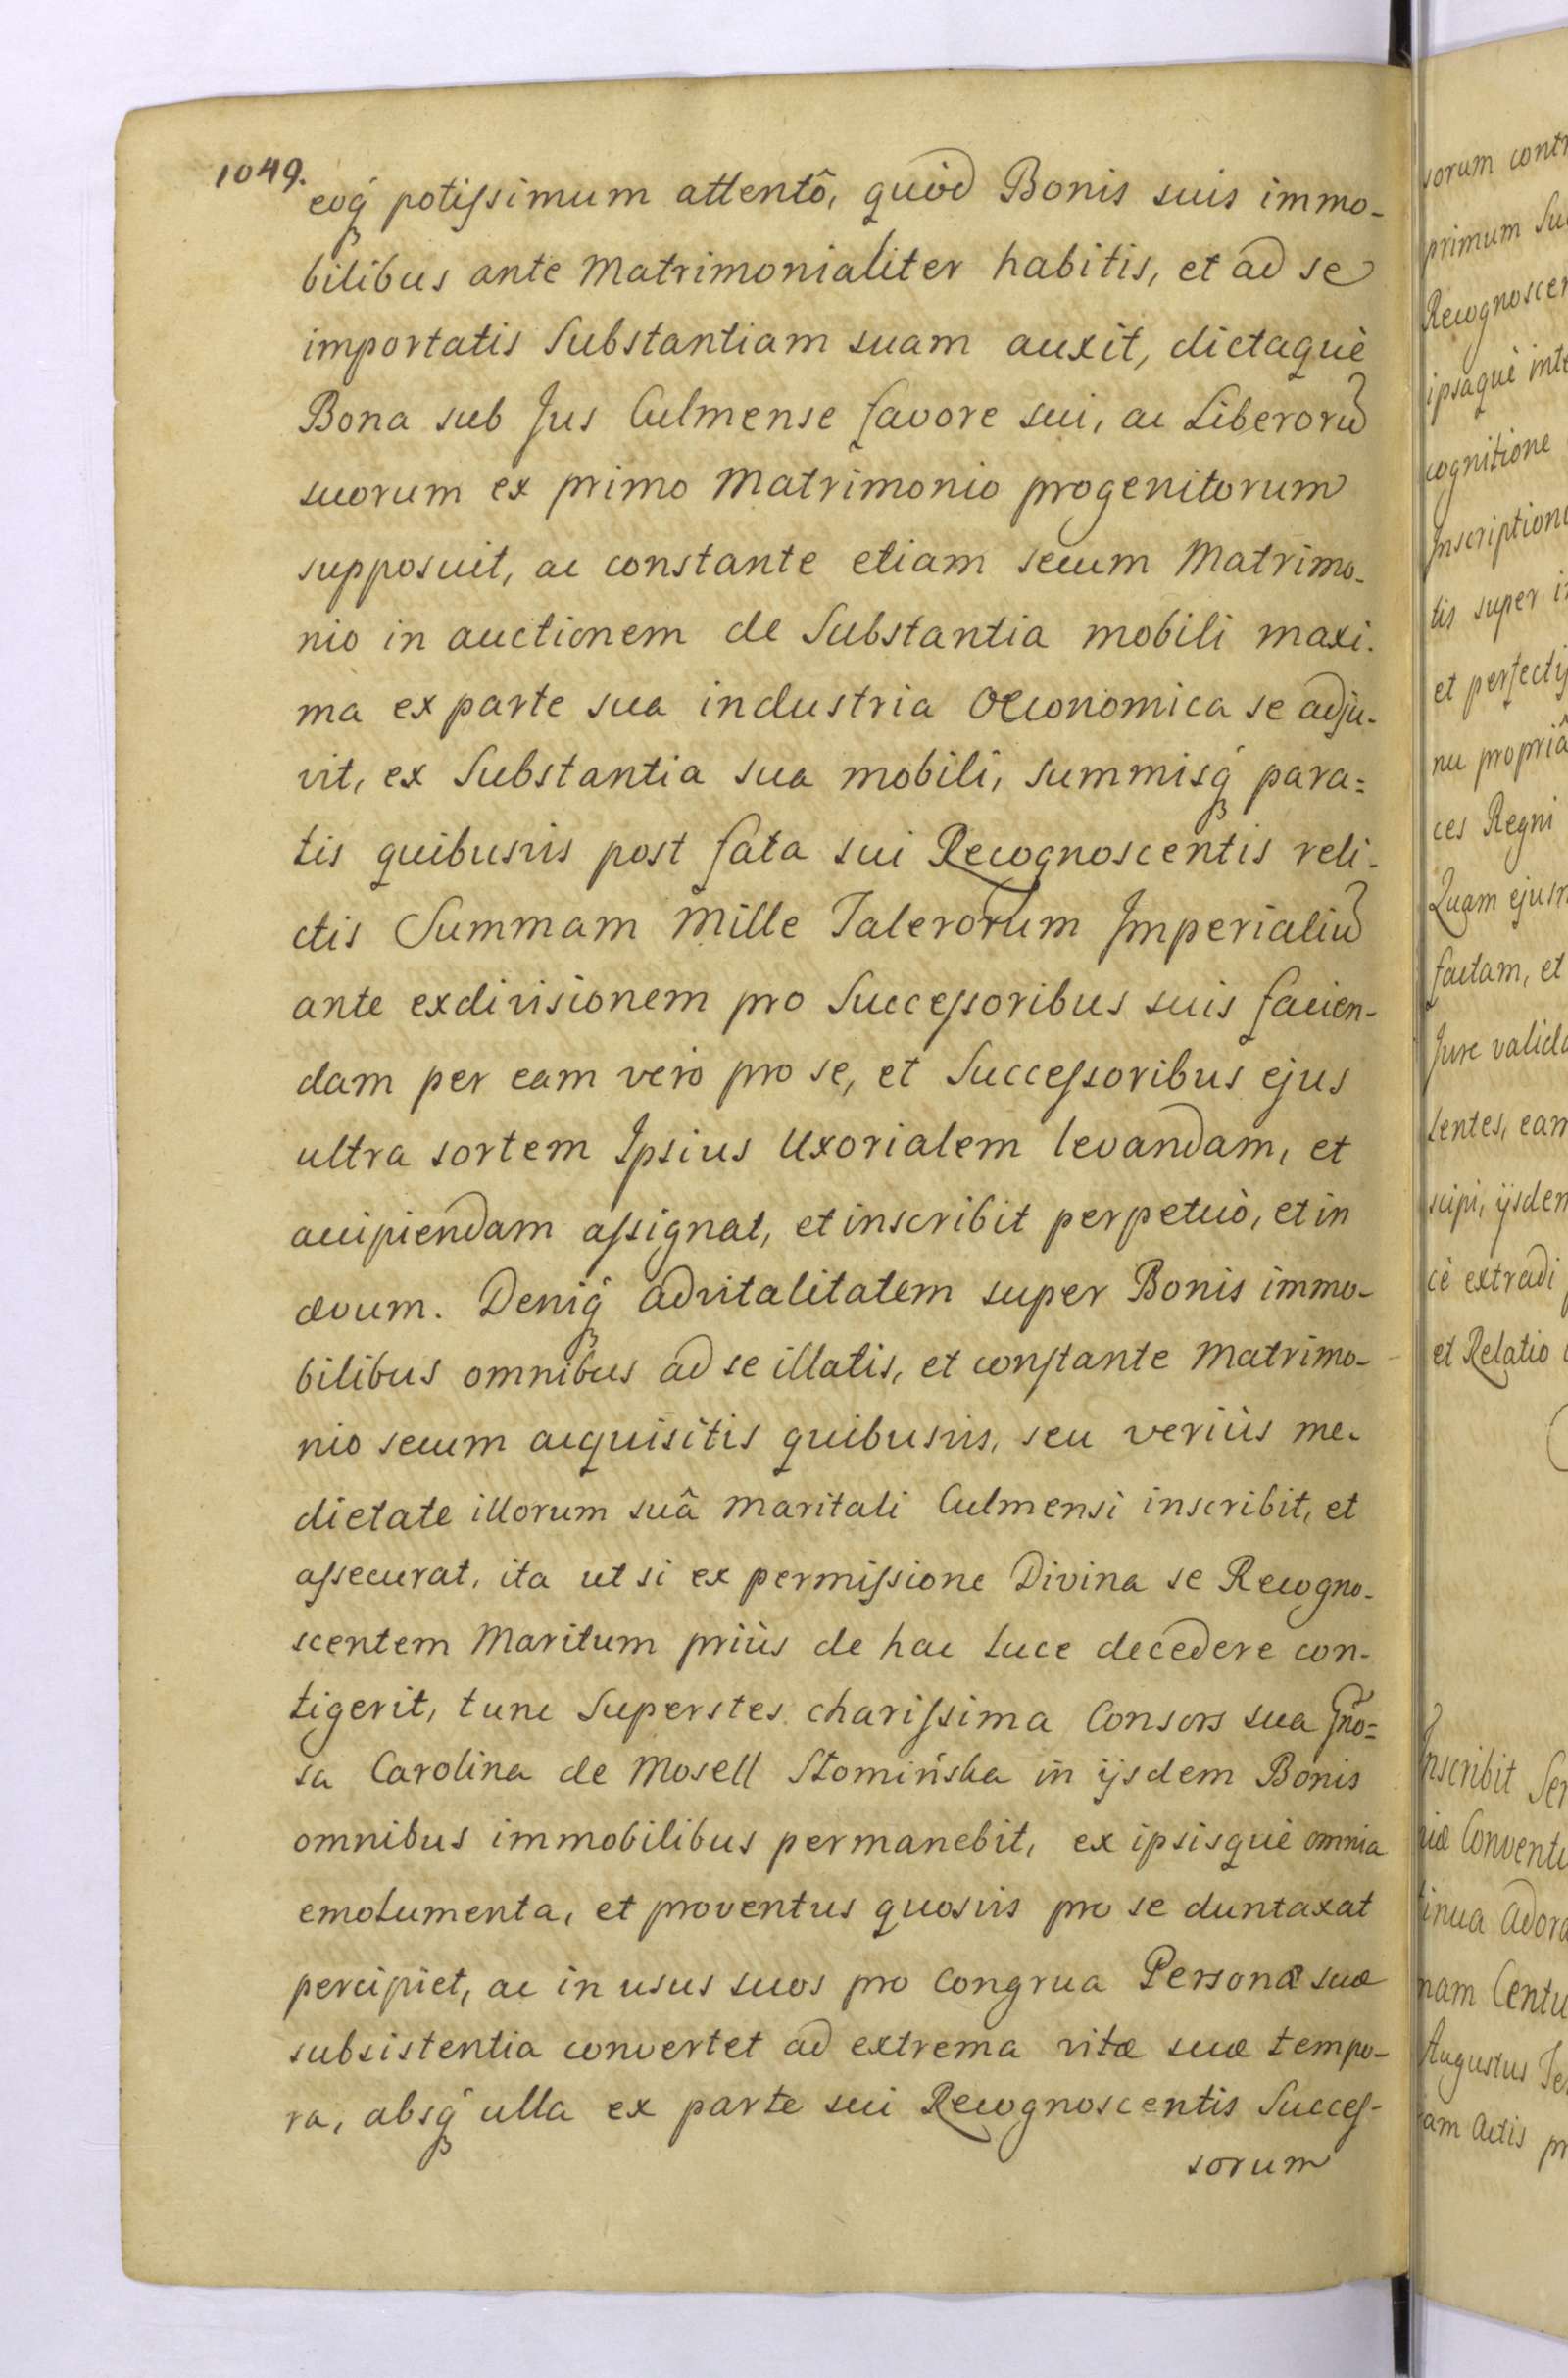 1049.
eoq́ꝫ potiſsimum attentô, quòd Bonis suis immo-
bilibus ante Matrimonialiter habitis, et ad se
importatis Substantiam suam auxit, dictaquè
Bona sub Jus Culmense favore sui, ac Liberorũ
suorum ex primo Matrimonio progenitorum
supposuit, ac constante etiam secum Matrimo-
nio in auctionem de Substantia mobili maxi-
ma ex parte sua industria Oeconomica se adju-
vit, ex Substantia sua mobili, summisq́ꝫ para=
tis quibusvis post fata sui Recognoscentis reli-
ctis Summam Mille Talerorum Imperialiũ
ante exdivisionem pro Succeſsoribus suis facien-
dam per eam verò pro se, et Succeſsoribus ejus
ultra sortem Ipsius Uxorialem levandam, et
accipiendam aſsignat, et inscribit perpetuò, et in
ævum. Deniq́ꝫ advitalitatem super Bonis immo-
bilibus omnibus ad se illatis, et conſtante Matrimo-
nio secum acquisitis quibusvis, seu veriùs me-
dietate illorum suâ maritali Culmensi inscribit, et
aſsecurat, ita ut si ex permiſsione Divina se Recogno-
scentem Maritum priùs de hac Luce decedere con-
tigerit, tunc Superstes chariſsima Consors sua Gño=
sa Carolina de Mosell Słomińska in ijsdem Bonis
omnibus immobilibus permanebit, ex ipsisquè omnia
emolumenta, et proventus quosvis pro se duntaxat
percipiet, ac in usus suos pro congrua Personæ suæ
subsistentia convertet ad extrema vitæ suæ tempo-
ra, absq́ꝫ ulla ex parte sui Recognoscentis Succeſ-
sorum
sorum
primum
ipsaquè
cognitione
tis super
nu propriâ
ces Regni
Quam
factam, et
Jure
eam
cè extradi
et Relatio
Inscribit
Augustus
Actis